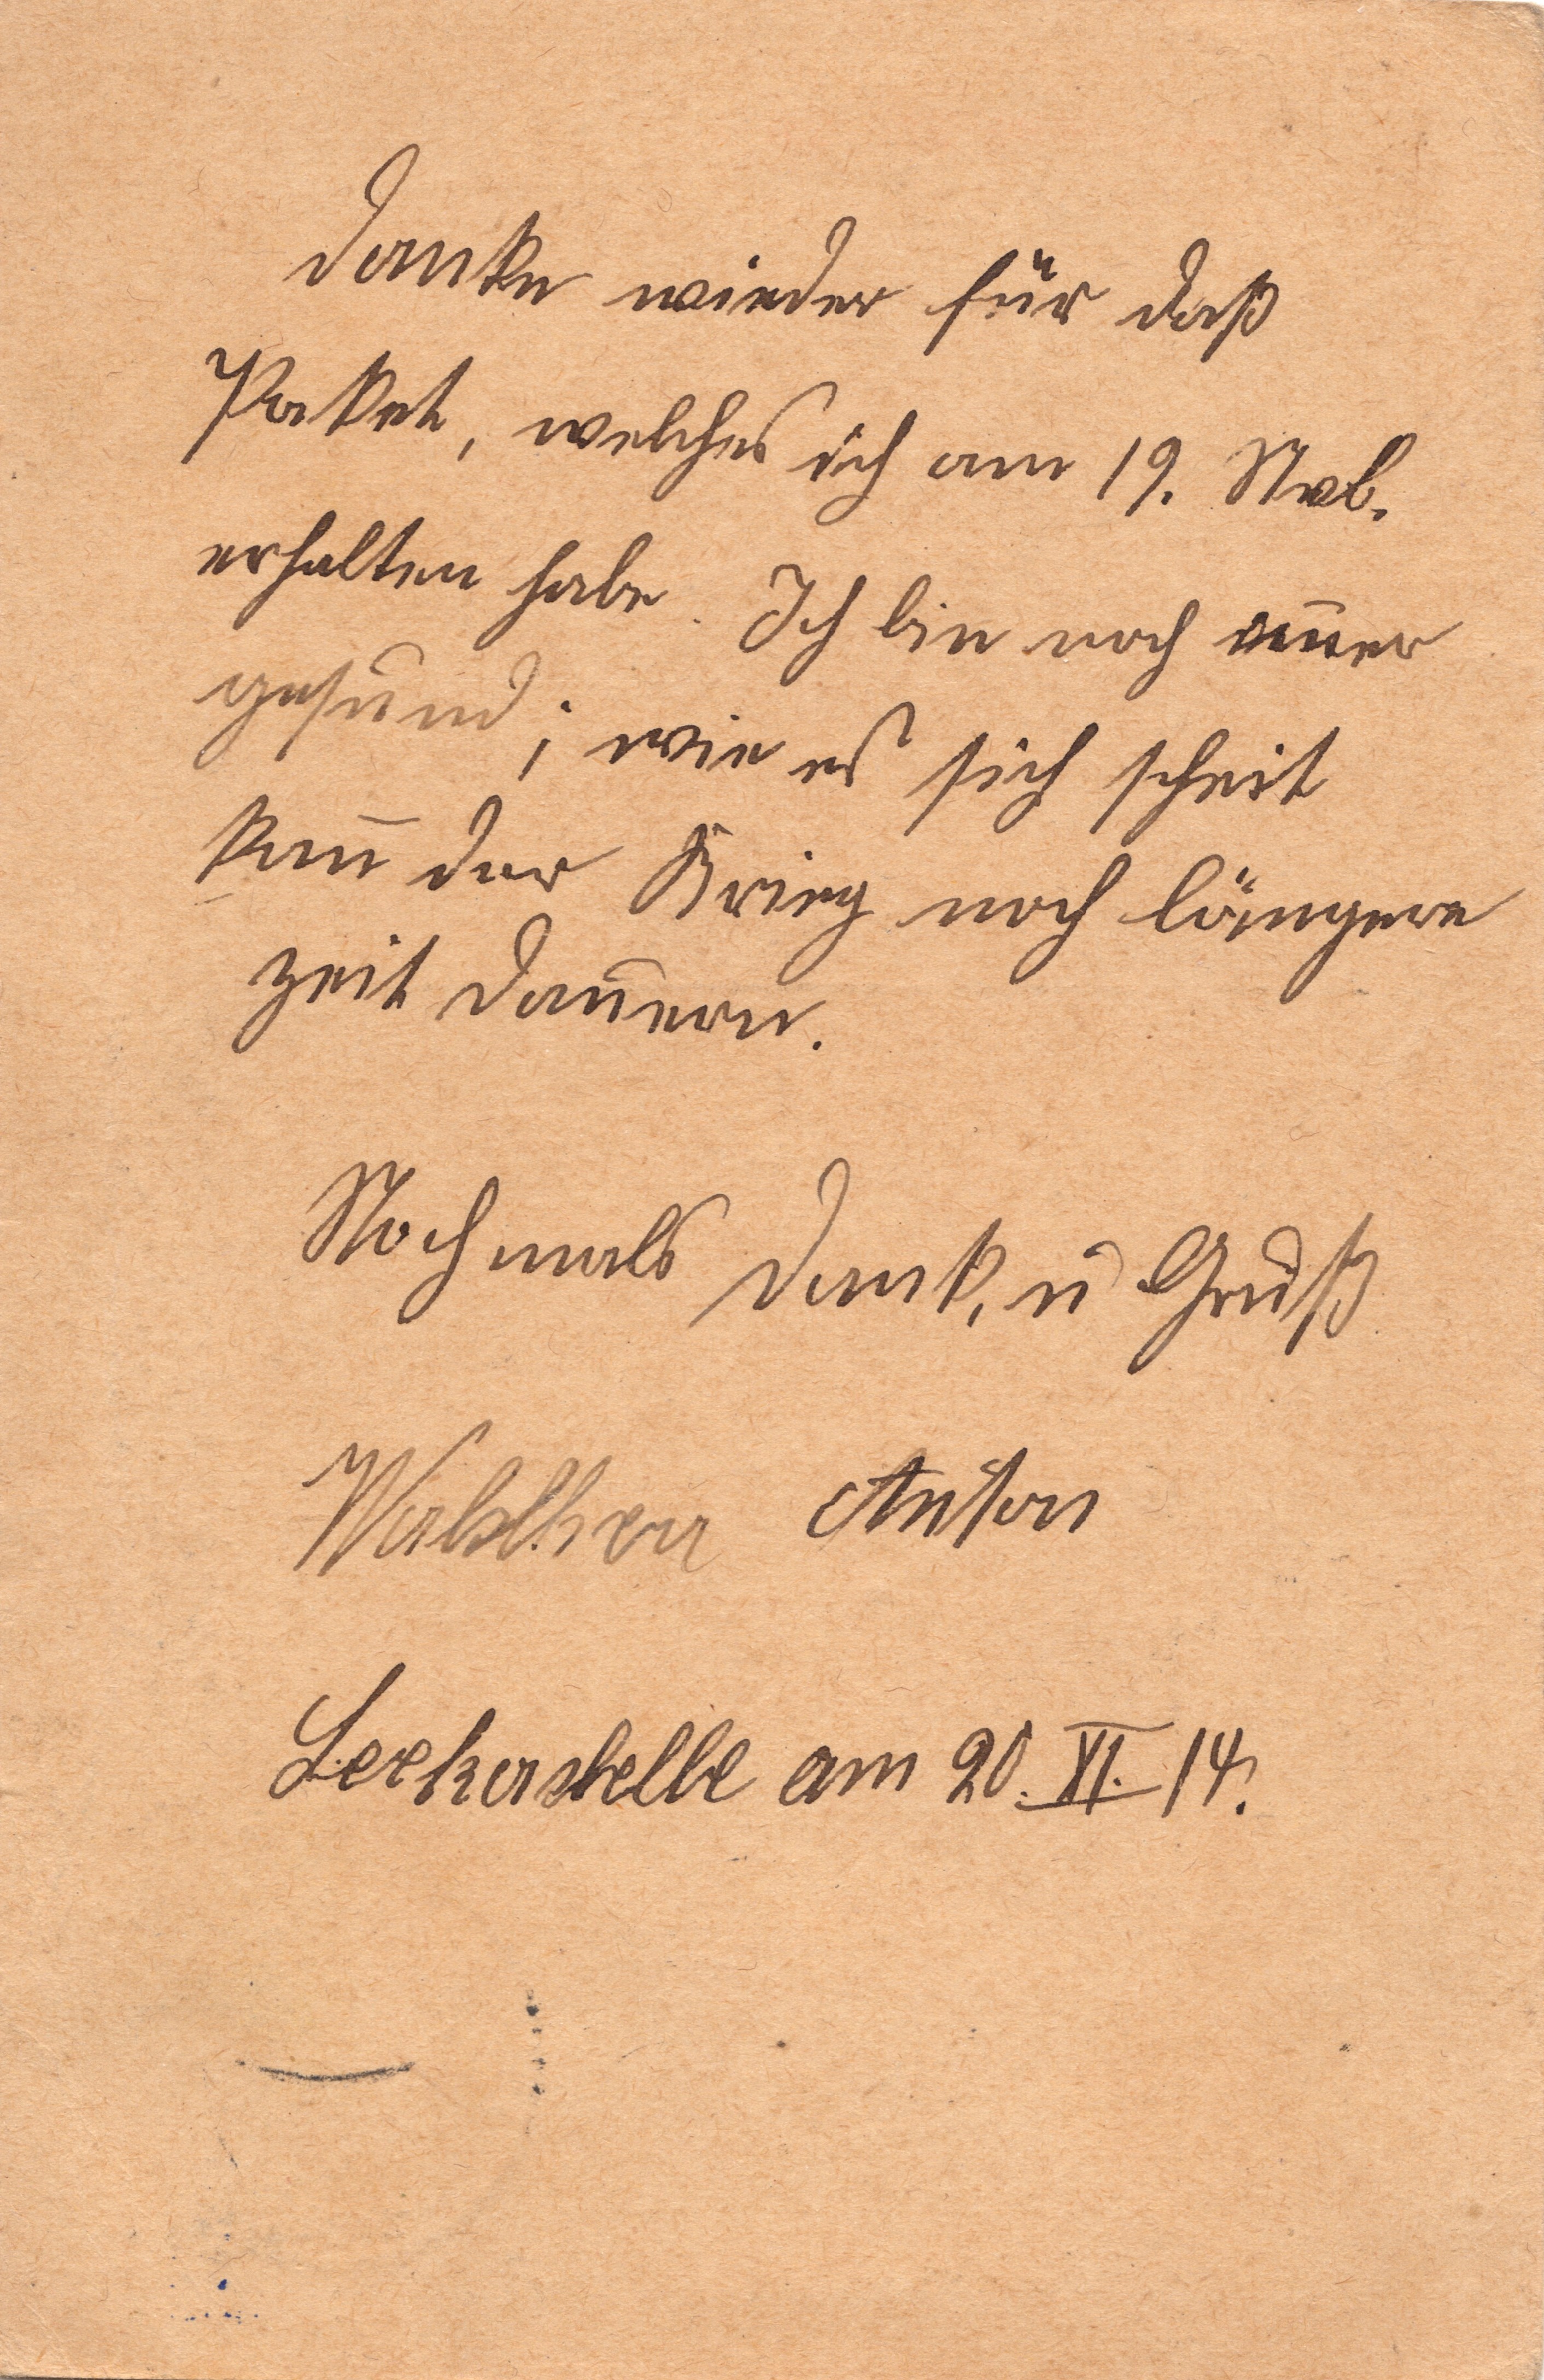 Danke wieder für daß
Paket, welches ich am 19. Nob.
erhalten habe. Ich bin noch im̅er
gesund; wie es sich scheit
kan̅ der Krieg noch längere
zeit dauern.
Nochmals Dank, u Gruß
Waldherr Anton
am 20. XI. 14.